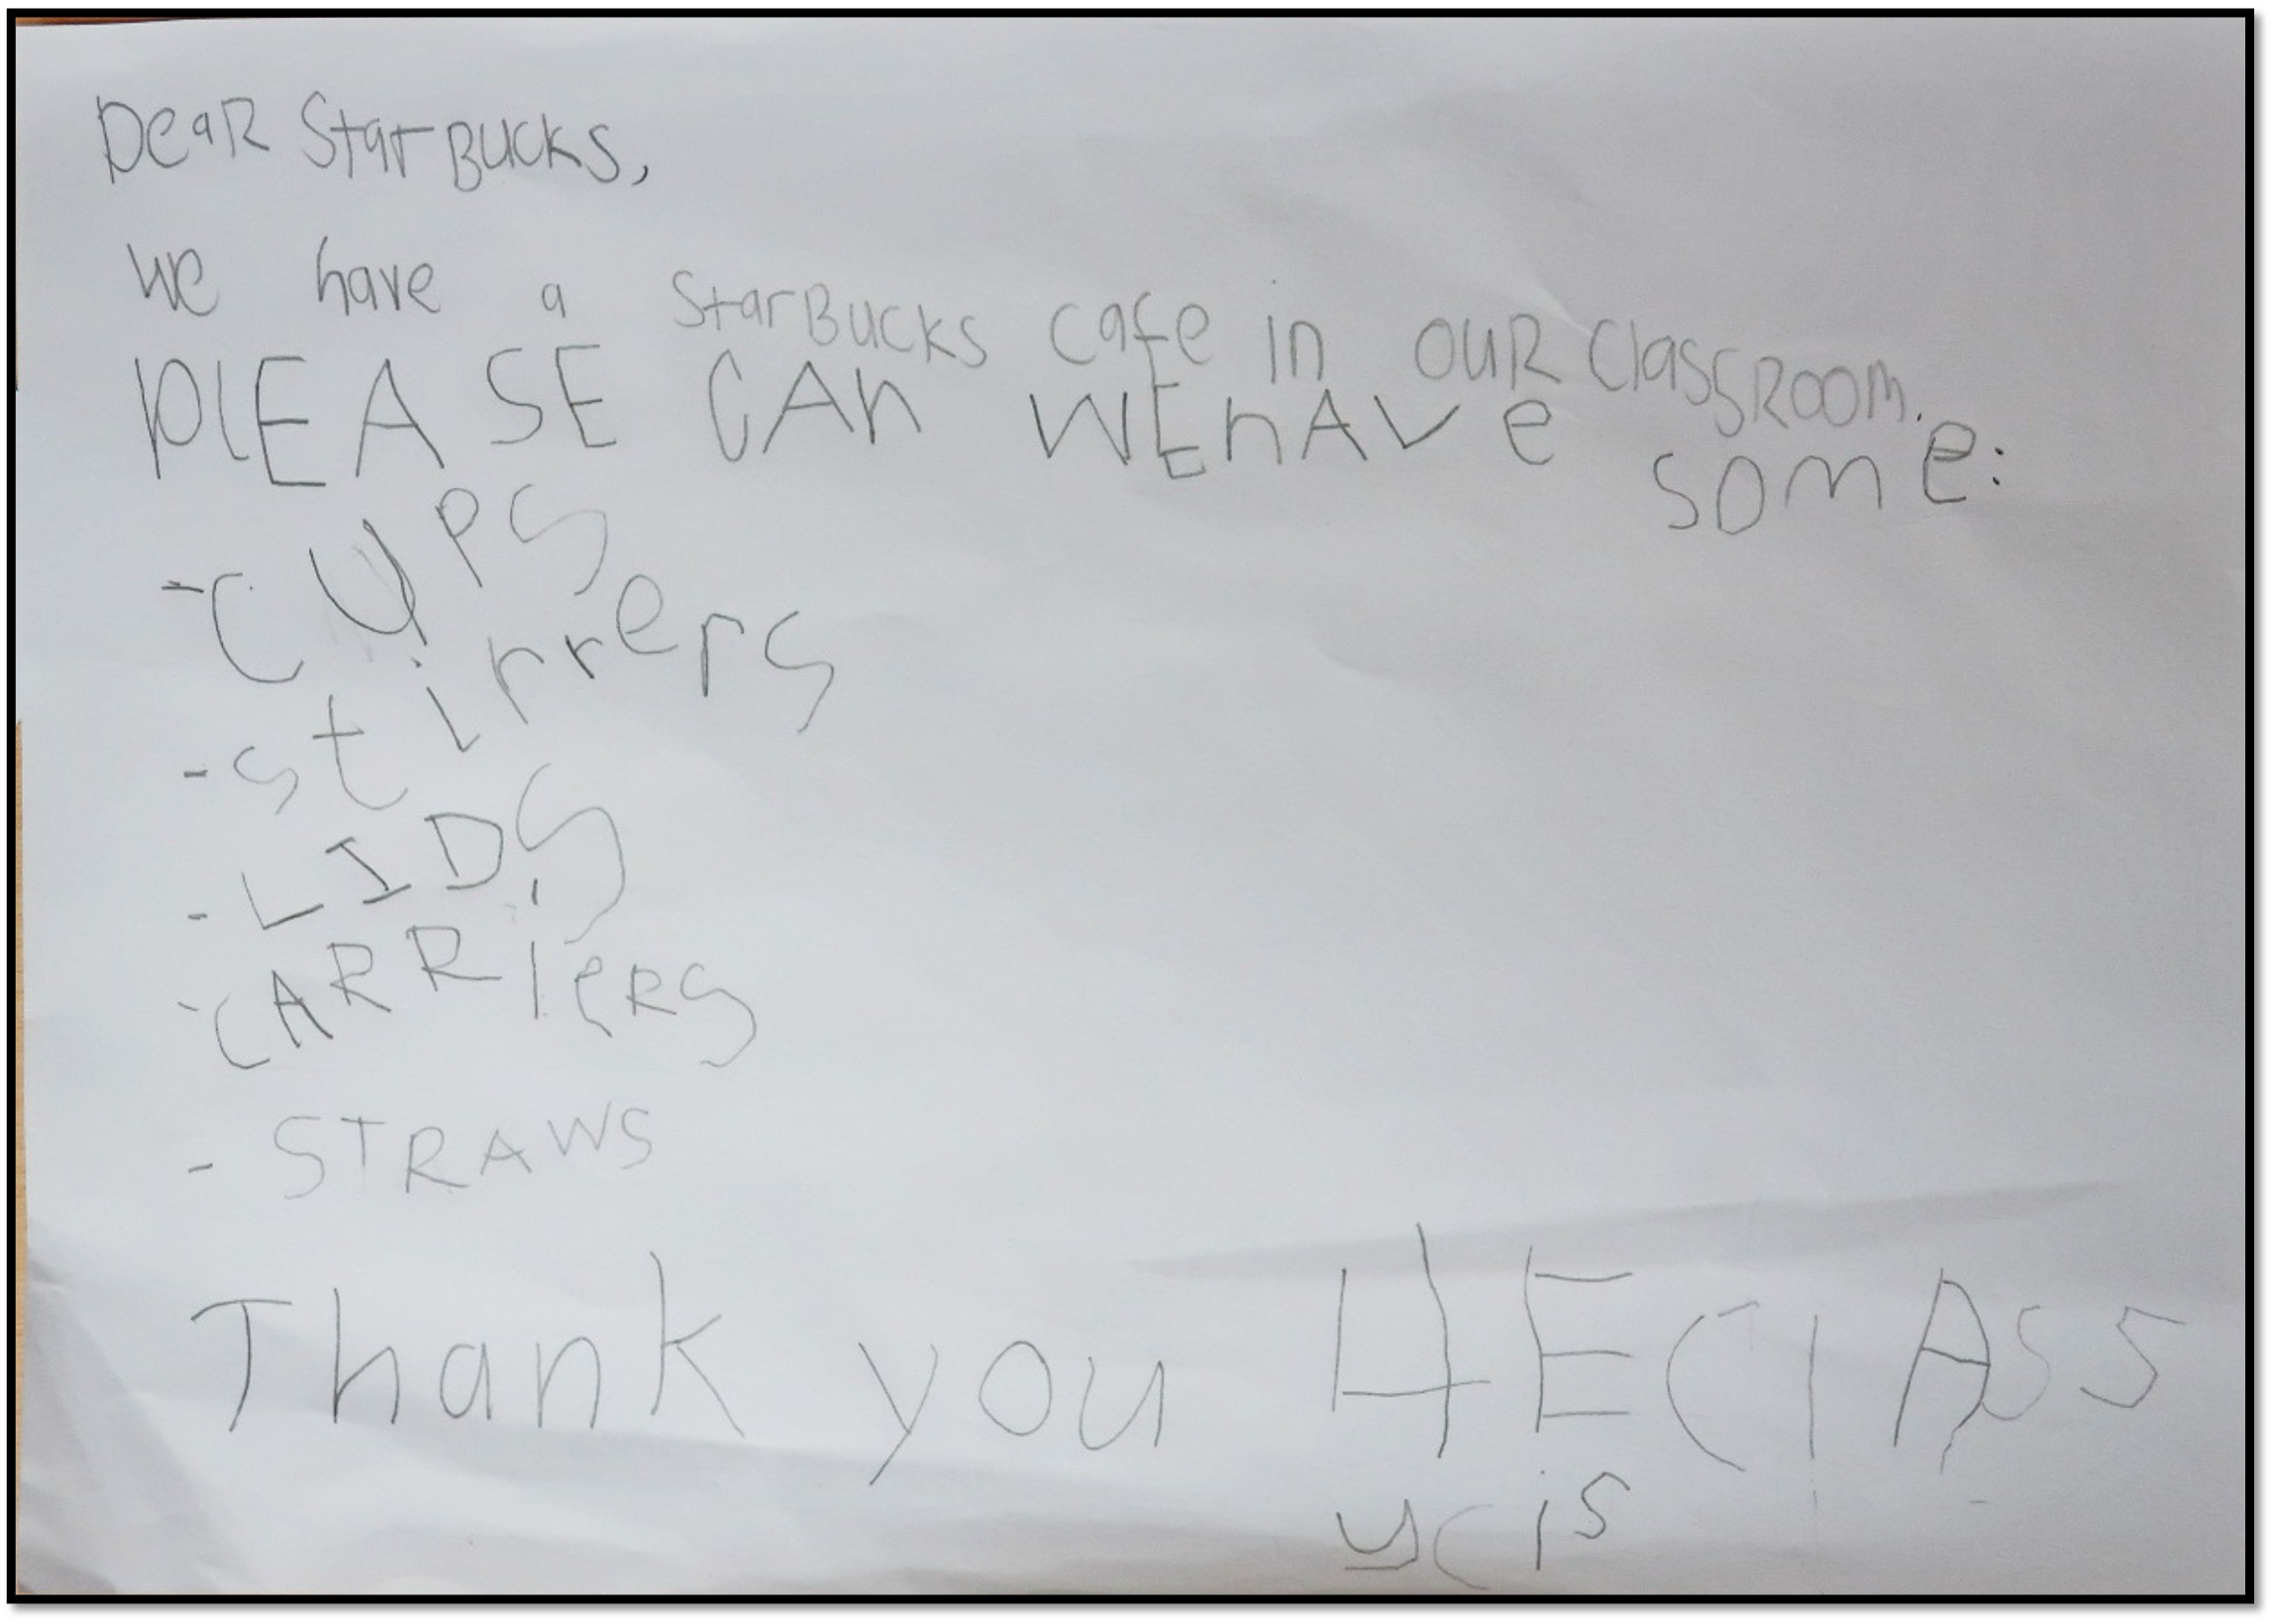 Dear StarBucks,
we have a StarBucks cafe in ouR classRoom.
plEASE CAn WE hAve some:
-cups
-stirrers
-LIDS
-CARRieRs
- STRAWS
Thank you 4E ClAss
ycis